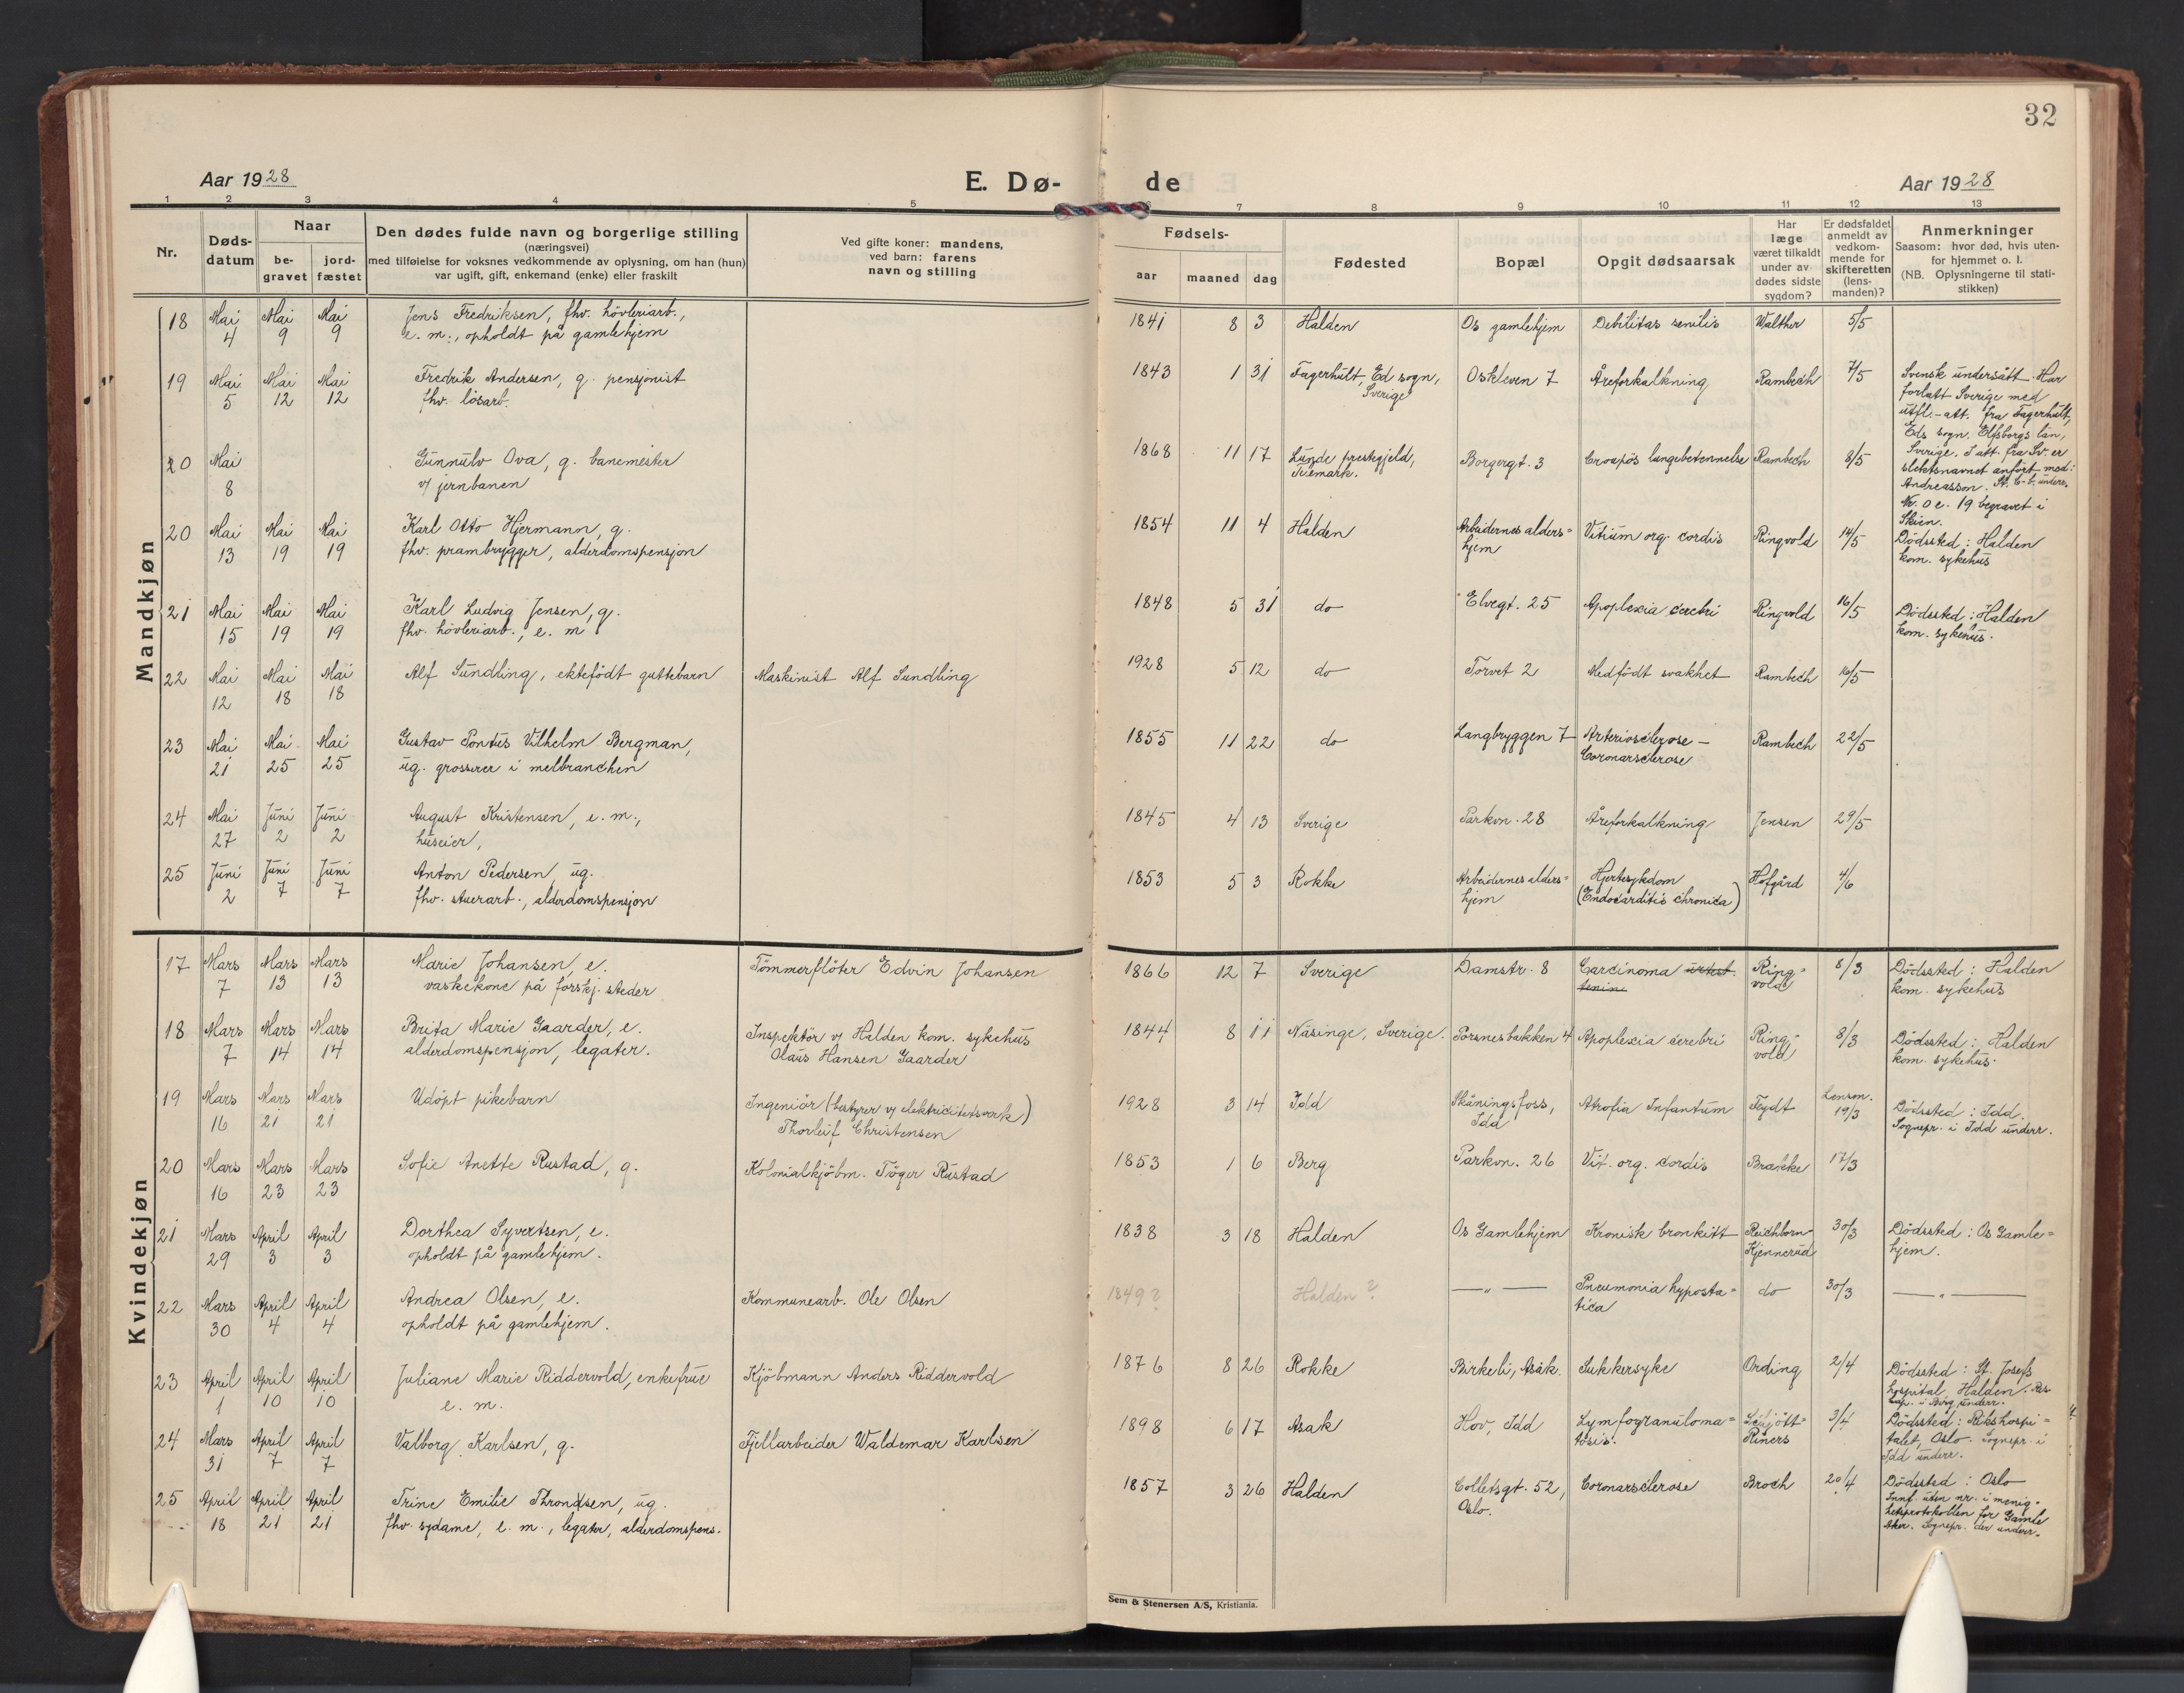 32
Aar 1928
E. Dø-
de
Aar 1928
1 2 3 4 5 6 7 8 9 10 11 12 13
Nr.
Døds-
datum
Naar
be-
gravet
jord-
fæstet
Den dødes fulde navn og borgerlige stilling
(næringsvei)
med tilføielse for voksnes vedkommende av oplysning, om han (hun)
var ugift, gift, enkemand (enke) eller fraskilt
Ved gifte koner: mandens,
ved barn: farens
navn og stilling
Fødsels-
aar
maaned
dag
Fødested
Bopæl
Opgit dødsaarsak
Har
læge
været tilkaldt
under av-
dødes sidste
sygdom?
Er dødsfaldet
anmeldt av
vedkom-
mende for
skifteretten
(lens-
manden)?
Anmerkninger
Saasom: hvor død, hvis uten-
for hjemmet o. l.
(NB. Oplysningerne til stati-
stikken)
Mandkjøn
18 Mai 4 Mai 9 Mai 9 Jens Fredriksen, fhv. hövleriarb.,
e. m., opholdt på gamlehjem
1841 8 3 Halden Os gamlehjem Debilitas senilis Walther 5/5
19 Mai 5 Mai 12 Mai 12 Fredrik Andersen, g. pensjonist
fhv. lösarb.
1843 1 31 Fagerhult, Ed sogn,
Sverige
Oskleven 7 Åreforkalkning Rambech 7/5
Svensk undersått. Har
forlatt Sverige med
utfl.-att. fra Fagerhult,
Eds sogn, Elfsborgs län,
Sverige. I att. fra Sv. er
slektsnavnet anfört med:
Andreasson.
20 Mai 8 Gunnulv Ova, g. banemester
v/ jernbanen
1868 11 17 Lunde prestegjeld,
Telemark.
Borgergt. 3 Croupös lungebetennelse Rambech 8/5
Nr. 0 e. 19 begravet i
Skien.
20 Mai 13 Mai 19 Mai 19 Karl Otto Hjermann, g.
fhv. prambrygger, alderdomspensjon
1854 11 4 Halden Arbeidernes alders=
hjem
Vitium org. cordis Ringvold 14/5
Dödssted: Halden
kom. sykehus
21 Mai 15 Mai 19 Mai 19 Karl Ludvig Jensen, g.
fhv. hövleriarb., e. m
1848 5 31 do Elvegt. 25 Apoplexia cerebri Ringvold 16/5
Dödssted: Halden
kom. sykehus.
22 Mai 12 Mai 18 Mai 18 Alf Sundling, ektefödt guttebarn Maskinist Alf Sundling
1928 5 12 do Torvet 2 Medfödt svakhet Rambech 16/5
23 Mai 21 Mai 25 Mai 25 Gustav Pontus Vilhelm Bergman,
ug. grosserer i melbranchen
1855 11 22 do Langbryggen 7 Arteriosclerose —
Coronarsclerose
Rambech 22/5
24 Mai 27 Juni 2 Juni 2 August Kristensen, e. m.,
huseier,
1845 4 13 Sverige Parkvn. 28 Åreforkalkning Jensen 29/5
25 Juni 2 Juni 7 Juni 7 Anton Pedersen, ug.
fhv. stuerarb., alderdomspensjon
1853 5 3 Rokke Arbeidernes alders=
hjem
Hjertesykdom
(Endocarditis chronica)
Hofgård 4/6
Kvindekjøn
17 Mars 7 Mars 13 Mars 13 Marie Johansen, e.
vaskekone på forskj. steder
Tömmerflöter Edvin Johansen
1866 12 7 Sverige Damstr. 8 Carcinoma
Ring-
vold
8/3
Dödssted: Halden
kom. sykehus
18 Mars 7 Mars 14 Mars 14 Brita Marie Gaarder, e.
alderdomspensjon, legater.
Inspektör v/ Halden kom. sykehus
Olaus Hansen Gaarder
1844 8 11 Näsinge, Sverige. Torsnesbakken 4 Apoplexia cerebri
Ring-
vold
8/3
Dödssted: Halden
kom. sykehus.
19 Mars 16 Mars 21 Mars 21 Udöpt pikebarn
Ingeniör (bestyrer v/ elektricitetsverk)
Thorleif Christensen
1928 3 14 Idd Skåningsfoss,
Idd
Atrofia Infantum Feydt Lensm.
19/3
Dödssted: Idd.
Sognepr. i Idd underr.
20 Mars 16 Mars 23 Mars 23 Sofie Anette Rustad, g. Kolonialkjöbm. Tröger Rustad
1853 1 6 Berg Parkvn. 26 Vit. org. cordis Brække 17/3
21 Mars 29 April 3 April 3 Dorthea Syvertsen, e.
opholdt på gamlehjem.
1838 3 18 Halden Os Gamlehjem Kronisk bronkitt Reichborn-
Kjennerud
30/3
Dödssted: Os Gamle=
hjem.
22 Mars 30 April 4 April 4 Andrea Olsen, e.
opholdt på gamlehjem.
Kommunearb. Ole Olsen
1849? Halden? — „ — Pneumonia hyposta=
tica
do 30/3 — „ —
23 April 1 April 10 April 10 Juliane Marie Riddervold, enkefrue
e. m.
Kjöbmann Anders Riddervold
1876 8 26 Rokke Birkeli, Asak. Sukkersyke Ording 2/4
Dödssted: St. Josefs
hospital, Halden. Res.
kap. i Berg underr.
24 Mars 31 April 7 April 7 Valborg Karlsen, g. Fjellarbeider Waldemar Karlsen
1898 6 17 Asak Hov, Idd Lymfogranuloma=
tosis.
Schjött-
Riners
3/4
Dödssted: Rikshospi=
talet, Oslo. Sognepr. i
Idd underr.
25 April 18 April 21 April 21 Trine Emilie Throndsen, ug.
fhv. sydame, e. m., legater, alderdomspens.
1857 3 26 Halden Colletsgt. 52,
Oslo.
Coronarsclerose Broch 20/4
Dödssted: Oslo
Innf. uten nr. i menig-
hetsprotokollen for Gamle
Aker. Sognepr. der underr.
Sem & Stenersen A/S, Kristiania.